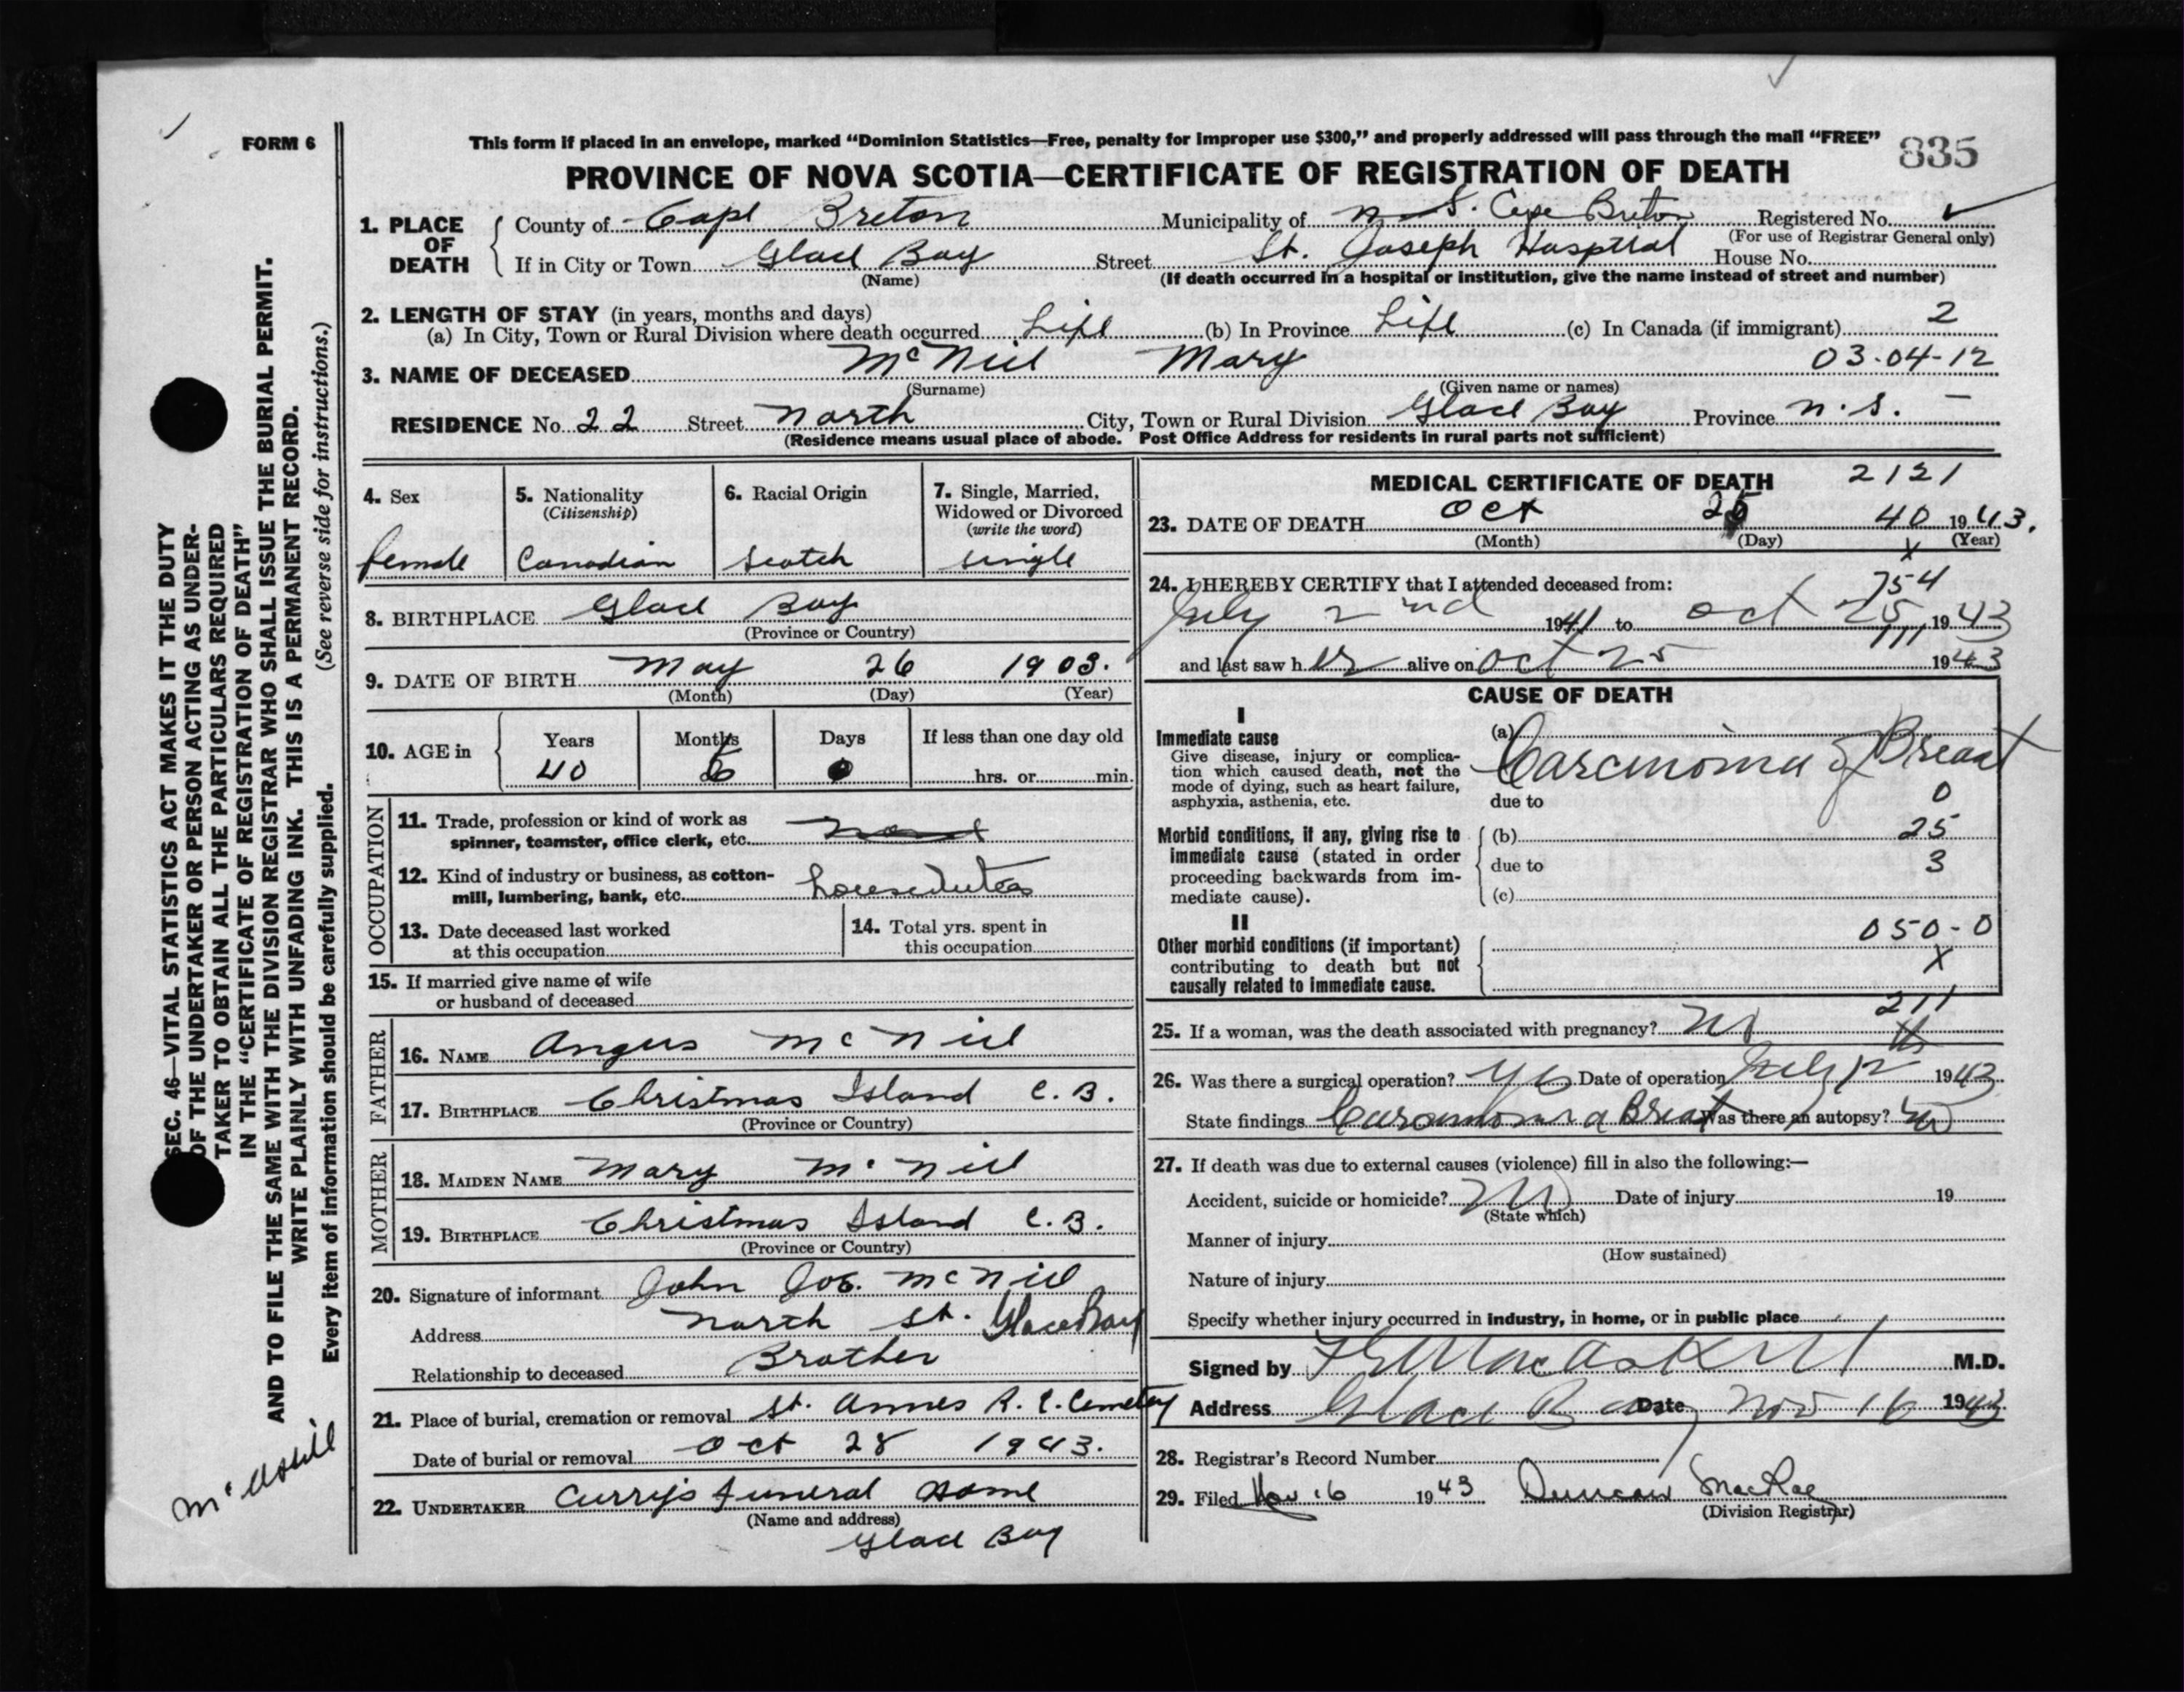 FORM 6
This form if placed in an envelope, marked “Dominion Statistics—Free, penalty for improper use $300,” and properly addressed will pass through the mail “FREE”
835
PROVINCE OF NOVA SCOTIA—CERTIFICATE OF REGISTRATION OF DEATH
1. PLACE OF DEATH
County of Cape Breton Municipality of N.S. Cape Breton Registered No. ✓
(For use of Registrar General only)
If in City or Town Glace Bay Street St. Joseph Hospital House No.
(Name) (If death occurred in a hospital or institution, give the name instead of street and number)
2. LENGTH OF STAY (in years, months and days)
(a) In City, Town or Rural Division where death occurred Life (b) In Province Life (c) In Canada (if immigrant) 2
3. NAME OF DECEASED McNeil Mary 03-04-12
(Surname) (Given name or names)
RESIDENCE No. 22 Street North City, Town or Rural Division Glace Bay Province N.S. —
(Residence means usual place of abode. Post Office Address for residents in rural parts not sufficient)
4. Sex
female
5. Nationality
(Citizenship)
Canadian
6. Racial Origin
Scotch
7. Single, Married, Widowed or Divorced
(write the word)
single
8. BIRTHPLACE Glace Bay
(Province or Country)
9. DATE OF BIRTH May 26 1903.
(Month) (Day) (Year)
10. AGE in Years Months Days If less than one day old
40 hrs. or min.
OCCUPATION
11. Trade, profession or kind of work as
spinner, teamster, office clerk, etc.
12. Kind of industry or business, as cotton-
mill, lumbering, bank, etc. houseduties
13. Date deceased last worked
at this occupation
14. Total yrs. spent in
this occupation
15. If married give name of wife
or husband of deceased
FATHER
16. NAME Angus McNeil
17. BIRTHPLACE Christmas Island C.B.
(Province or Country)
MOTHER
18. MAIDEN NAME Mary McNeil
19. BIRTHPLACE Christmas Island C.B.
(Province or Country)
20. Signature of informant John Joe. McNeil
Address North St. Glace Bay
Relationship to deceased Brother
21. Place of burial, cremation or removal St. Annes R.C. Cemetery
Date of burial or removal Oct 28 1943.
22. UNDERTAKER Curry's Funeral Home
(Name and address)
Glace Bay
MEDICAL CERTIFICATE OF DEATH 2121
23. DATE OF DEATH Oct 25 40 1943.
(Month) (Day) x (Year)
24. I HEREBY CERTIFY that I attended deceased from: 754
July 2nd 1941 to Oct 25 1943
111
and last saw her alive on Oct 25 1943
CAUSE OF DEATH
I
Immediate cause
Give disease, injury or complica-
tion which caused death, not the
mode of dying, such as heart failure,
asphyxia, asthenia, etc.
(a) Carcinoma of Breast
due to 0
Morbid conditions, if any, giving rise to
immediate cause (stated in order
proceeding backwards from im-
mediate cause).
(b) 25
due to 3
(c)
II
Other morbid conditions (if important)
contributing to death but not
causally related to immediate cause.
050-0
X
211
25. If a woman, was the death associated with pregnancy? No
26. Was there a surgical operation? Yes Date of operation July 12th 1943
State findings Carcinoma Breast Was there an autopsy? No
27. If death was due to external causes (violence) fill in also the following:—
Accident, suicide or homicide? No Date of injury 19
(State which)
Manner of injury
(How sustained)
Nature of injury
Specify whether injury occurred in industry, in home, or in public place
Signed by MacAskill M.D.
Address Glace Bay Date Nov 16 1943
28. Registrar's Record Number
29. Filed Nov 16 1943 Duncan MacRae
(Division Registrar)
SEC. 46—VITAL STATISTICS ACT MAKES IT THE DUTY
OF THE UNDERTAKER OR PERSON ACTING AS UNDER-
TAKER TO OBTAIN ALL THE PARTICULARS REQUIRED
IN THE “CERTIFICATE OF REGISTRATION OF DEATH”
AND TO FILE THE SAME WITH THE DIVISION REGISTRAR WHO SHALL ISSUE THE BURIAL PERMIT.
WRITE PLAINLY WITH UNFADING INK. THIS IS A PERMANENT RECORD.
Every item of information should be carefully supplied. (See reverse side for instructions.)
McAskill